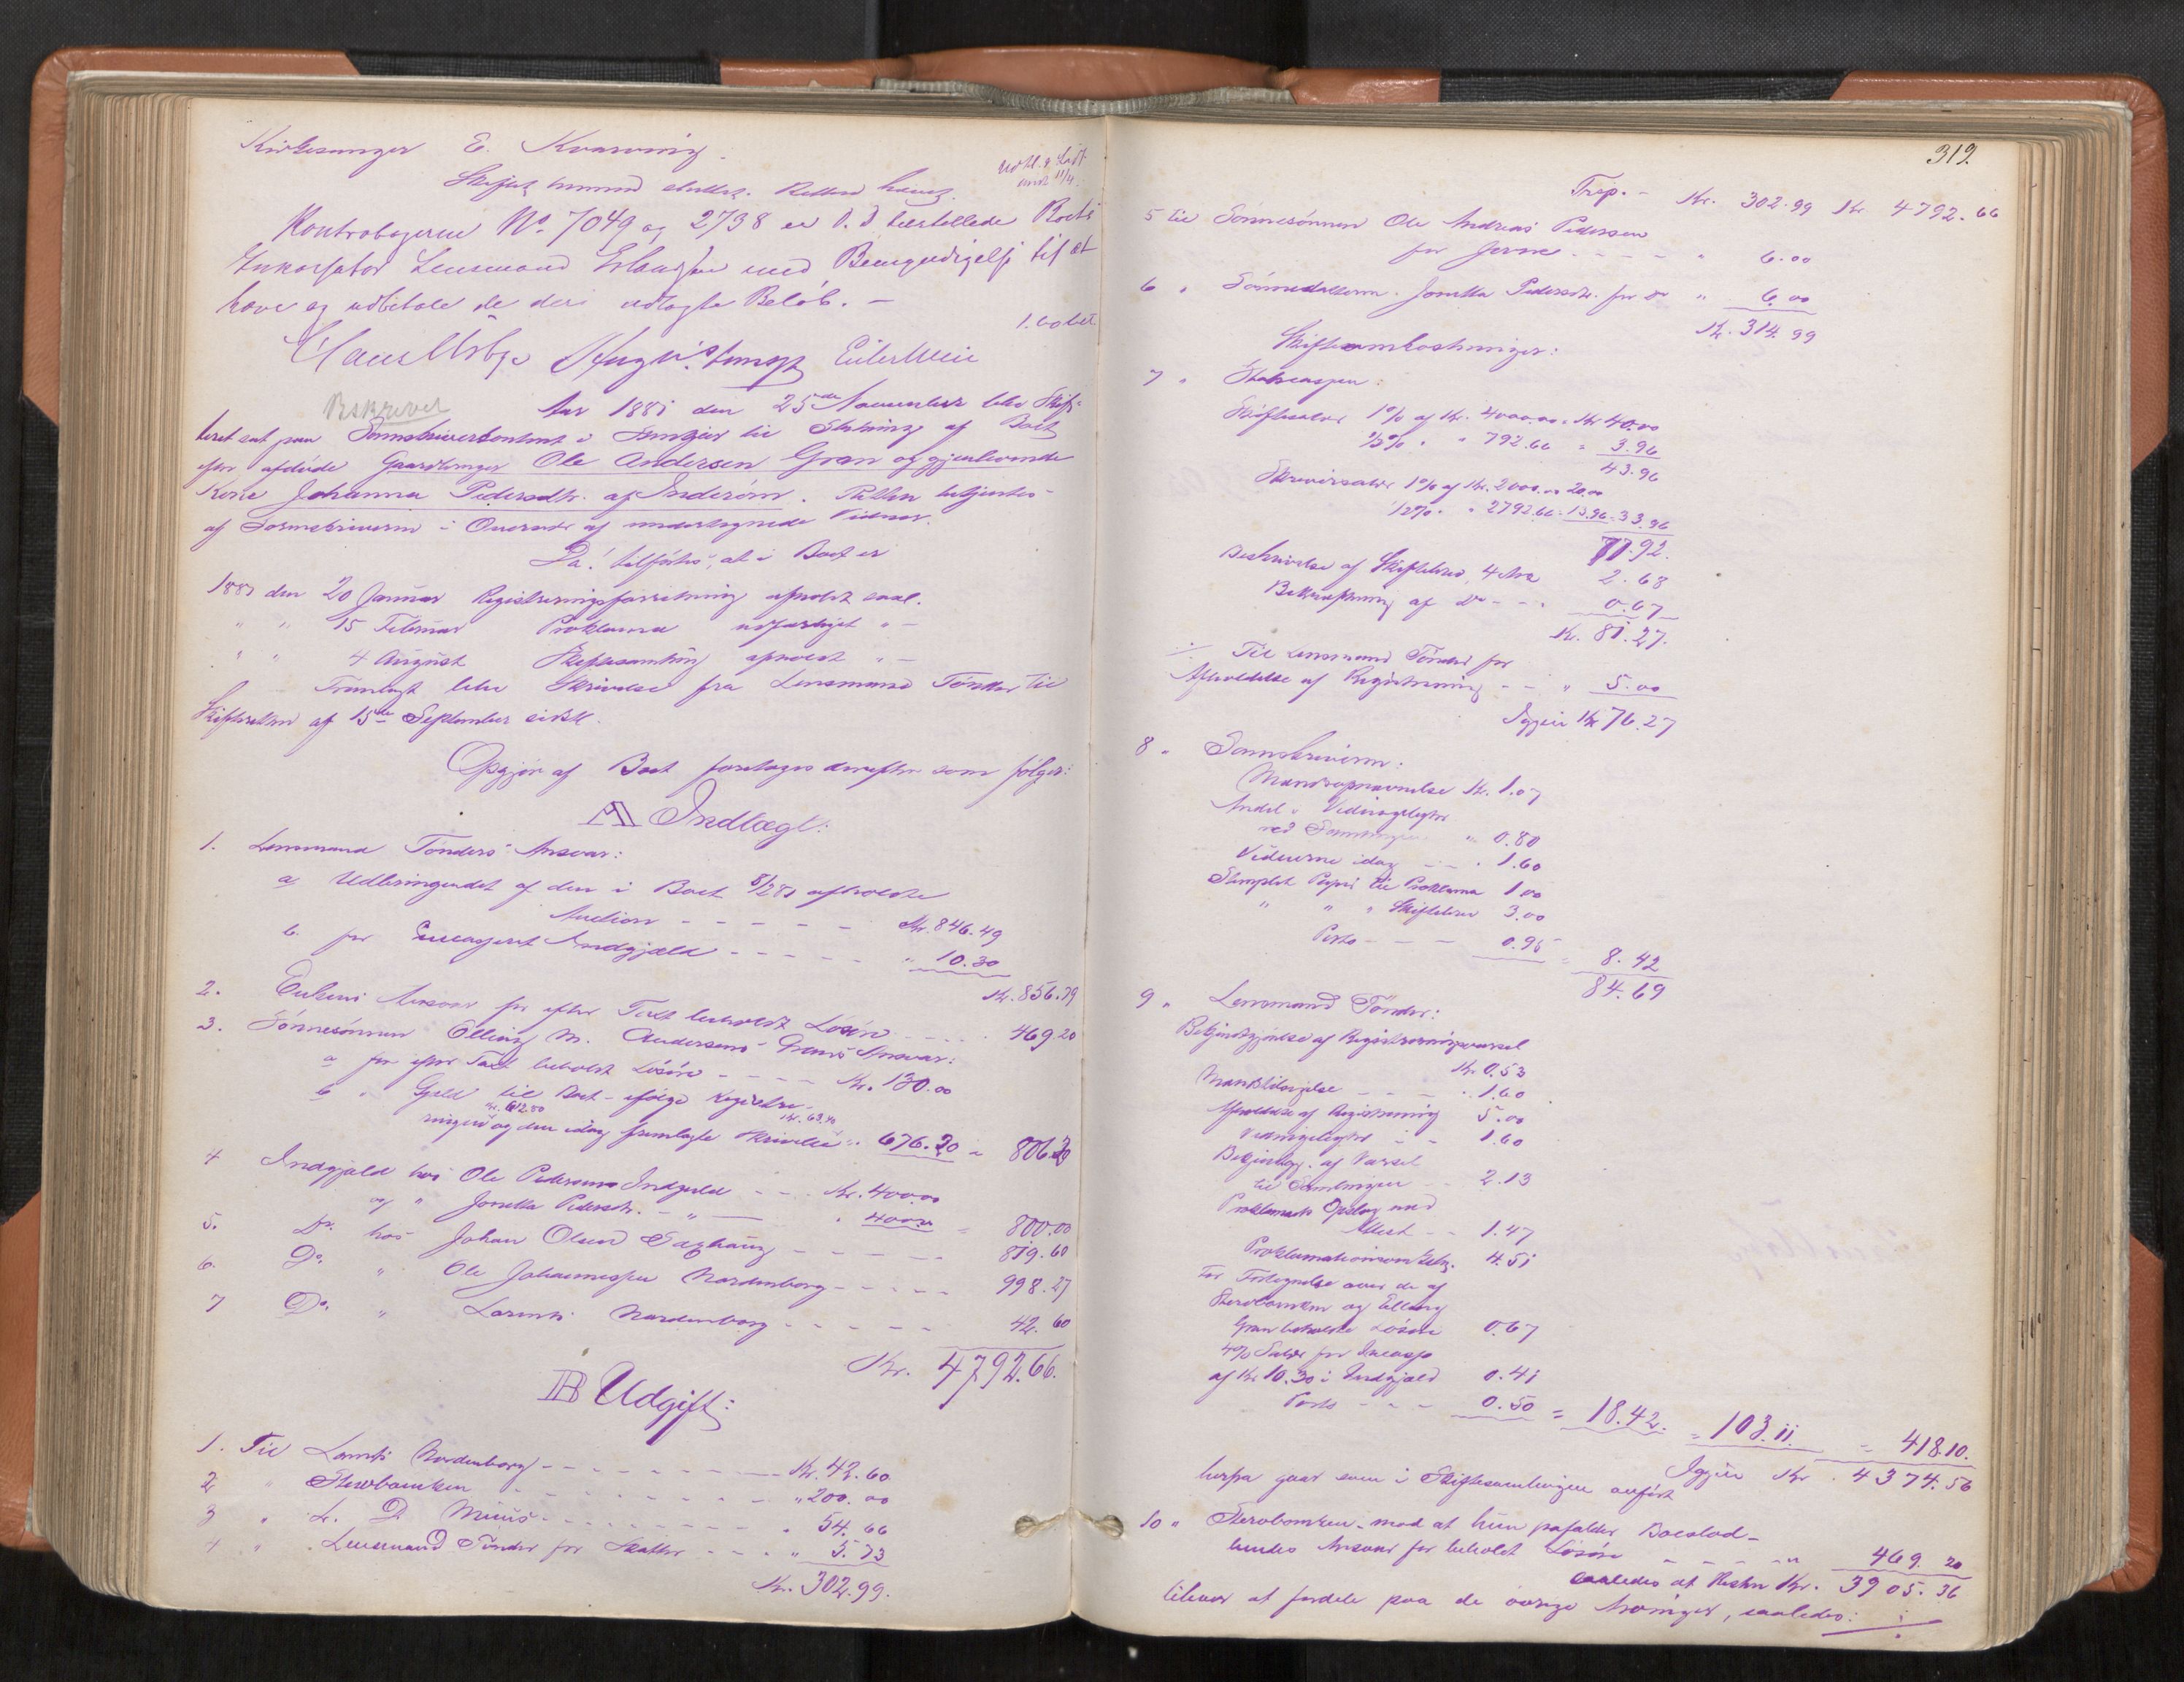 Kirkesanger E. Kvarving.
Skiftet hermed sluttet. Retten hævet.
Kontrabøgerne No. 7049 og 2738 er O. S. tilstillede Boets
Inkassator Lensmand Erlandsen med Bemyndigelse til at
hæve og udbetale de deri udlagte Beløb. -
1.60 bet.
Claus Urbye
Beskrevet
Aar 1881 den 25de November blev Skif-
teret sat paa Sorenskriverkontoret i Levanger til Slutning af Boet
efter afdøde Gaardbruger Ole Andersen Gran og gjenlevende
Kone Johanna Pedersdtr. af Inderøen. Retten betjentes
af Sorenskriveren i Overvær af undertegnede Vidner.
Da! tilførtes, at i Boet er
1881 den 20 Januar Registreringsforretning afholdt saal.
" " 15 Februar Proklama udfærdiget " -
" " 4 August Skiftesamling afholdt " -
Fremlagt blev Skrivelse fra Lensmand Tönder til
Skifteretten af 15de September sidstl.
Opgjør af Boet foretoges derefter som følger:
A Indlægt:
1. Lensmand Tönders Ansvar:
a Udbringendet af den i Boet 8/2 81 afholdte
Auction - - - - - Kr. 846.49
b. for Incasseret Indgjæld - - - - - " 10.30
Kr. 856.79
2. Enkens Ansvar for efter Taxt beholdt Løsøre - - - - 469.20
3. Sønnesønnen Elling M. Andersens Grans Ansvar:
a for efter Taxt beholdt Løsøre - - - - Kr. 130.00
b " Gjæld til Boet - ifølge Registre-
Kr. 612.80 Kr. 63.40
ringen og den idag fremlagte Skrivelse " 676.20 = 806.20
4 Indgjæld hos Ole Pedersens Indgjæld - - - Kr. 400.00
og " Jonetta Pedersdtr. - " - " 400.00 = 800.00
5. Do. hos Johan Olsen Saghaug - - - - - 819.60
6. Do. " Ole Johannessen Nordenborg - - - - - 998.27
7 Do. " Lorents Nordenborg - - - - - 42.60
Kr. 4792.66.
B Udgift:
1. Til Lorents Nordenborg - - - - - - Kr. 42.60
2 " Stervboenken - - - - - - " 200.00
3 " L. D. Müus - - - - - - " 54.66
4 " Lensmand Tönder for Skatter - - - " 5.73
Kr. 302.99.
319.
Trsp. - Kr. 302.99 Kr 4792.66
5 til Sønnesønnen Ole Andreas Pedersen
for - - - - " 6.00
6 " Sønnedatteren Jonetta Pedersdtr. for Do " 6.00
Kr. 314.99
Skifteomkostninger:
7 " Statscassen:
Skiftesalær 1% af Kr. 4000.00 = Kr 40.00
1/2% " " 792.66 = 3.96
43.96
Skriversalær 1% af Kr. 2000.00 20.00
1/2% " " 2792.66 = 13.96 = 33.96
77.92.
Beskrivelse af Skiftebrev, 4 Ark 2.68
Bekræftning af Do - - - 0.67
Kr. 81.27.
÷ Til Lensmand Tönder for
Afholdelse af Registrering - - " 5.00
Igjen Kr 76.27
8 " Sorenskriveren:
Mandsopnævnelse Kr. 1.07
Andel i Vidnegebyr
ved Samlingen " 0.80
Vidnerne idag - - " 1.60
Stemplet Papir til Proklama 1.00
" " " Skiftebrev 3.00
Porto - - - 0.95 = 8.42
84.69
9 " Lensmand Tönder:
Bekjendtgjørelse af Registreringsvarsel
Kr. 0.53
Mandstilsigelse - - - " 1.60
Afholdelse af Registrering 5.00
Vidnegebyr - - 1.60
Bekjendtg. af Varsel
til Samlingen - - 2.13
Proklamats Opslag med
Attest - - 1.47
Proklamationsomkstn. 4.51
For Fortegnelse over de af
Stervboenken og Elling
Gran beholdte Løsøre 0.67
4% Salær for Incasso
af Kr 10.30 i Indgjæld 0.41
Porto - - - 0.50 = 18.42. = 103.11. = 418.10.
Igjen Kr. 4374.56
herpaa gaar som i Skiftesamlingen anført
10 " Stervboenken - mod at hun paafalder Boeslod -
hendes Ansvar for beholdt Løsøre - - - - " 469.20
saaledes at Resten Kr. 3905.36
bliver at fordele paa de øvrige Arvinger, saaledes: